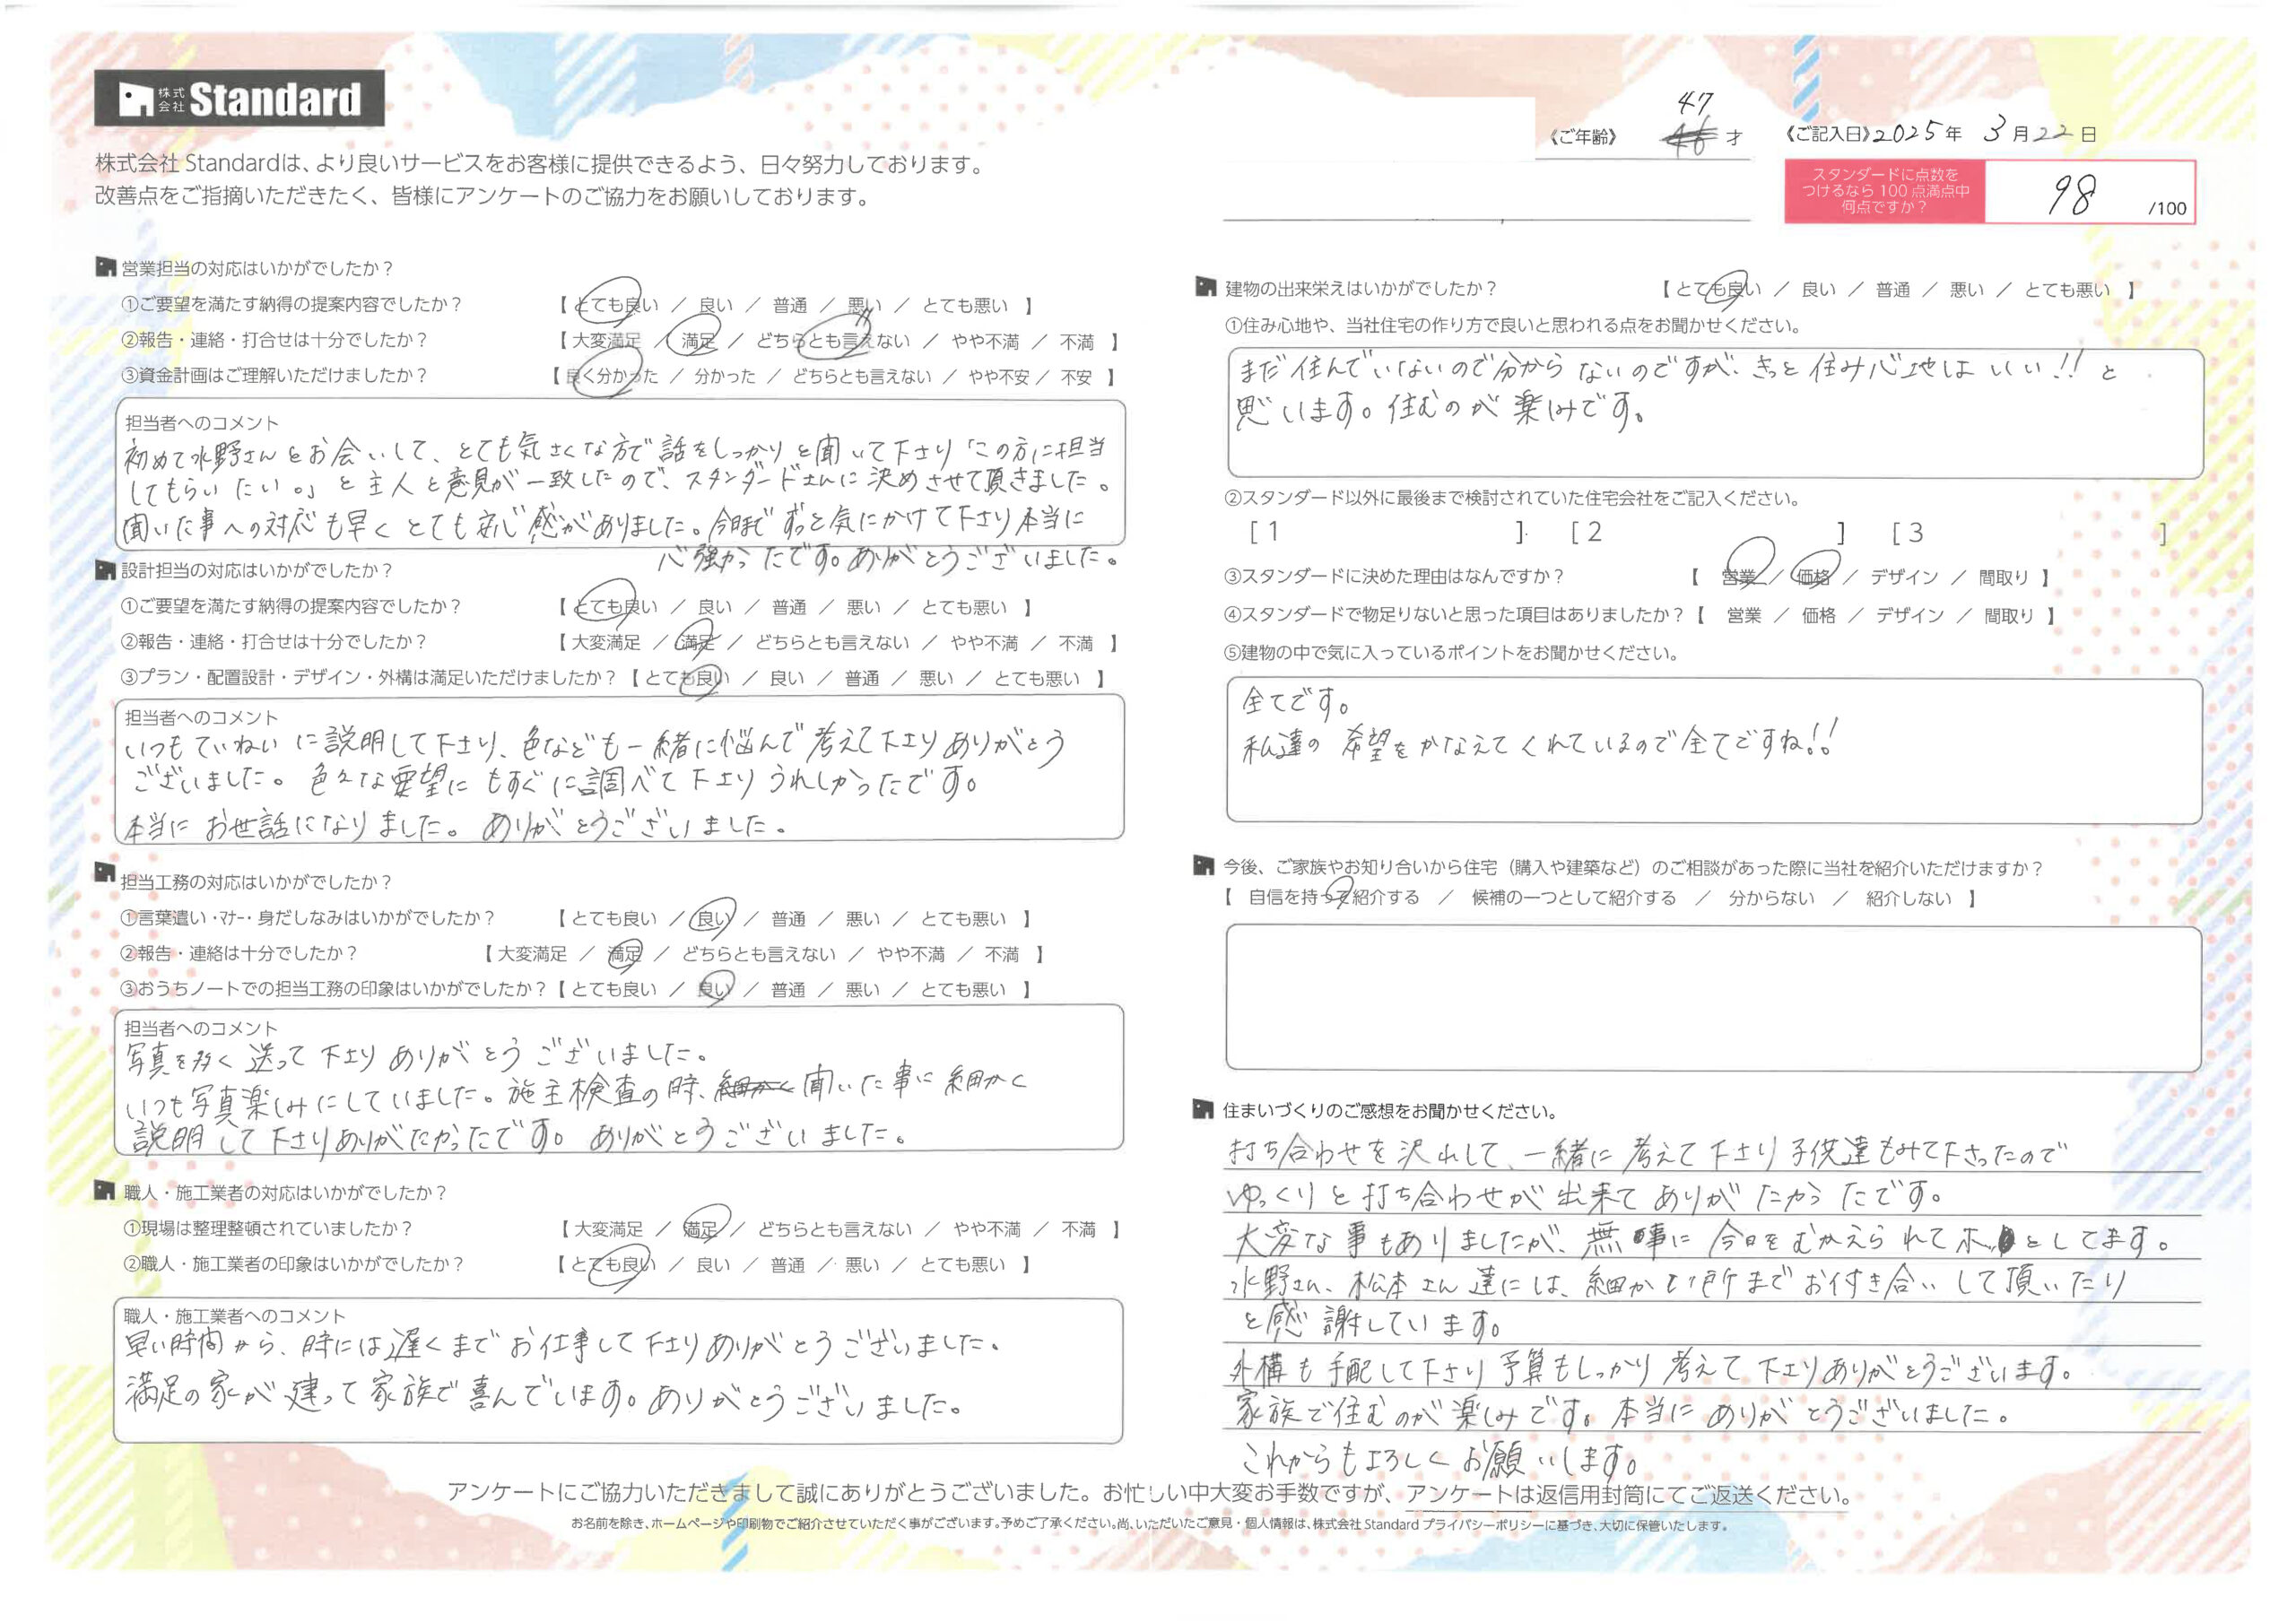 株式会社 Standard
株式会社 Standardは、より良いサービスをお客様に提供できるよう、日々努力しております。
改善点をご指摘いただきたく、皆様にアンケートのご協力をお願いしております。
《ご年齢》 47 才
《ご記入日》2025年 3月22日
スタンダードに点数を
つけるなら100点満点中
何点ですか？
98 /100
営業担当の対応はいかがでしたか？
①ご要望を満たす納得の提案内容でしたか？ 【 とても良い ／ 良い ／ 普通 ／ 悪い ／ とても悪い 】
②報告・連絡・打合せは十分でしたか？ 【 大変満足 ／ 満足 ／ どちらとも言えない ／ やや不満 ／ 不満 】
③資金計画はご理解いただけましたか？ 【 良く分かった ／ 分かった ／ どちらとも言えない ／ やや不安 ／ 不安 】
担当者へのコメント
初めて水野さんとお会いして、とても気さくな方で話をしっかりと聞いて下さり「この方に担当
してもらいたい。」と主人と意見が一致したので、スタンダードさんに決めさせて頂きました。
聞いた事への対応も早くとても安心感がありました。今日までずっと気にかけて下さり本当に
心強かったです。ありがとうございました。
設計担当の対応はいかがでしたか？
①ご要望を満たす納得の提案内容でしたか？ 【 とても良い ／ 良い ／ 普通 ／ 悪い ／ とても悪い 】
②報告・連絡・打合せは十分でしたか？ 【 大変満足 ／ 満足 ／ どちらとも言えない ／ やや不満 ／ 不満 】
③プラン・配置設計・デザイン・外構は満足いただけましたか？【 とても良い ／ 良い ／ 普通 ／ 悪い ／ とても悪い 】
担当者へのコメント
いつもていねいに説明して下さり、色なども一緒に悩んで考えて下さりありがとう
ございました。色々な要望にもすぐに調べて下さりうれしかったです。
本当にお世話になりました。ありがとうございました。
担当工務の対応はいかがでしたか？
①言葉遣い・マナー・身だしなみはいかがでしたか？ 【 とても良い ／ 良い ／ 普通 ／ 悪い ／ とても悪い 】
②報告・連絡は十分でしたか？ 【 大変満足 ／ 満足 ／ どちらとも言えない ／ やや不満 ／ 不満 】
③おうちノートでの担当工務の印象はいかがでしたか？【 とても良い ／ 良い ／ 普通 ／ 悪い ／ とても悪い 】
担当者へのコメント
写真を多く送って下さりありがとうございました。
いつも写真楽しみにしていました。施主検査の時、聞いた事に細かく
説明して下さりありがたかったです。ありがとうございました。
職人・施工業者の対応はいかがでしたか？
①現場は整理整頓されていましたか？ 【 大変満足 ／ 満足 ／ どちらとも言えない ／ やや不満 ／ 不満 】
②職人・施工業者の印象はいかがでしたか？ 【 とても良い ／ 良い ／ 普通 ／ 悪い ／ とても悪い 】
職人・施工業者へのコメント
早い時間から、時には遅くまでお仕事して下さりありがとうございました。
満足の家が建って家族で喜んでいます。ありがとうございました。
建物の出来栄えはいかがでしたか？ 【 とても良い ／ 良い ／ 普通 ／ 悪い ／ とても悪い 】
①住み心地や、当社住宅の作り方で良いと思われる点をお聞かせください。
まだ住んでいないので分からないのですが、きっと住み心地はいい!!と
思います。住むのが楽しみです。
②スタンダード以外に最後まで検討されていた住宅会社をご記入ください。
[ 1 ] [ 2 ] [ 3 ]
③スタンダードに決めた理由はなんですか？ 【 営業 ／ 価格 ／ デザイン ／ 間取り 】
④スタンダードで物足りないと思った項目はありましたか？【 営業 ／ 価格 ／ デザイン ／ 間取り 】
⑤建物の中で気に入っているポイントをお聞かせください。
全てです。
私達の希望をかなえてくれているので全てですね!!
今後、ご家族やお知り合いから住宅（購入や建築など）のご相談があった際に当社を紹介いただけますか？
【 自信を持って紹介する ／ 候補の一つとして紹介する ／ 分からない ／ 紹介しない 】
住まいづくりのご感想をお聞かせください。
打ち合わせを沢れして、一緒に考えて下さり子供達もみて下さったので
ゆっくりと打ち合わせが出来てありがたかったです。
大変な事もありましたが、無事に今日をむかえられてホッとしてます。
水野さん、松本さん達には、細かい所までお付き合いして頂いたり
と感謝しています。
外構も手配して下さり予算もしっかり考えて下さりありがとうございます。
家族で住むのが楽しみです。本当にありがとうございました。
これからもよろしくお願いします。
アンケートにご協力いただきまして誠にありがとうございました。お忙しい中大変お手数ですが、アンケートは返信用封筒にてご返送ください。
お名前を除き、ホームページや印刷物でご紹介させていただく事がございます。予めご了承ください。尚、いただいたご意見・個人情報は、株式会社 Standard プライバシーポリシーに基づき、大切に保管いたします。